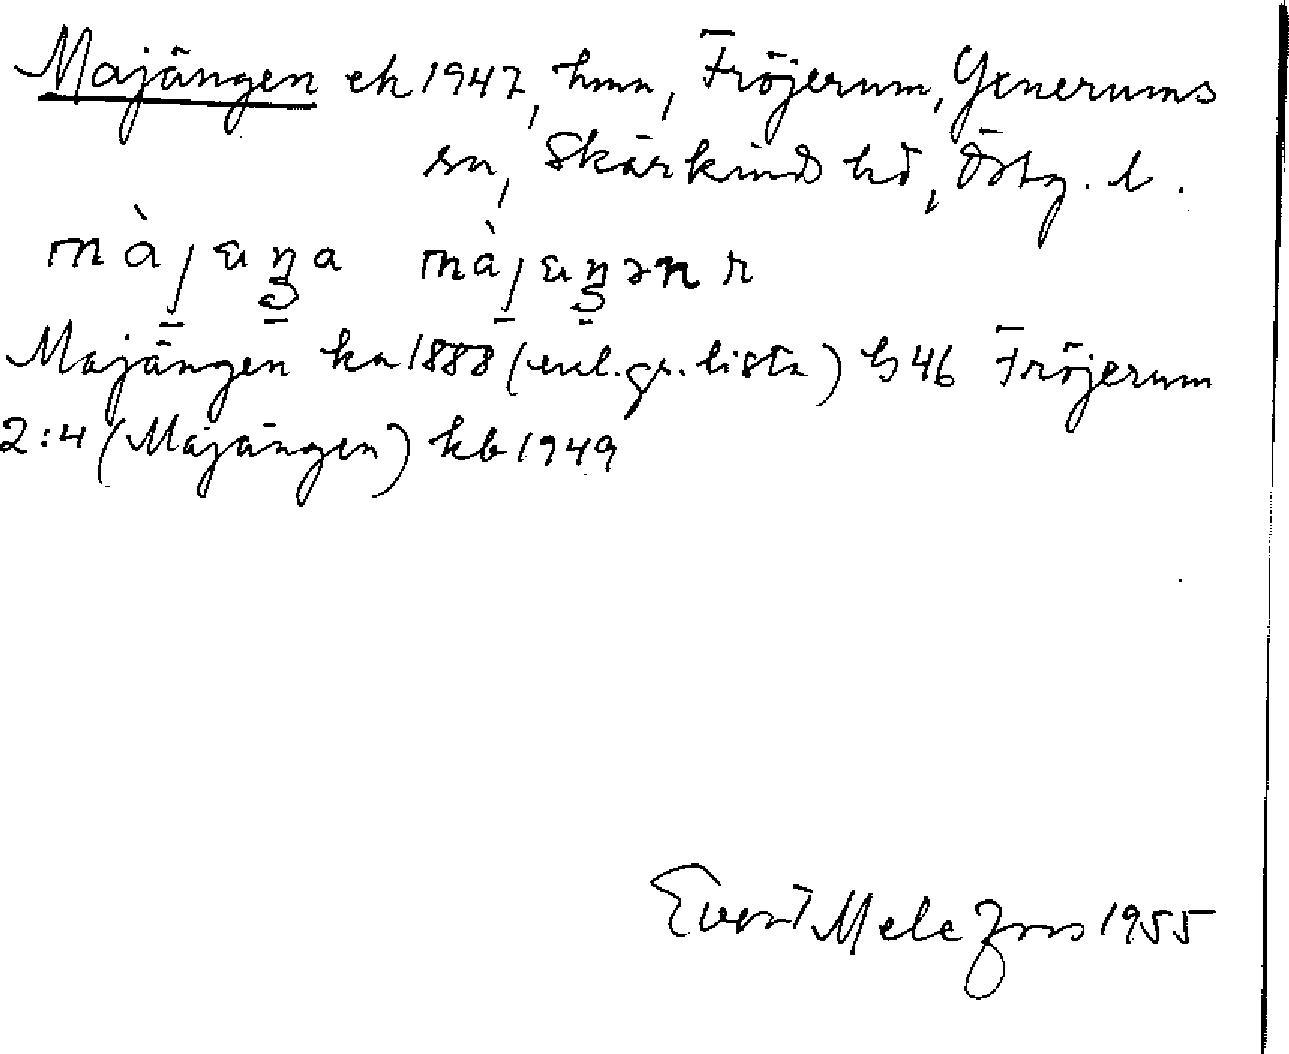 Majängen ek 1947, hmn, Fröjerum, Yxnerums
sn, Skärkinds hd, Östg. l.
Majängen ka 1888 (enl. gr. lista) b 46 Fröjerum
2:4 (Majängen) kb 1949
Evert Melefors 1955